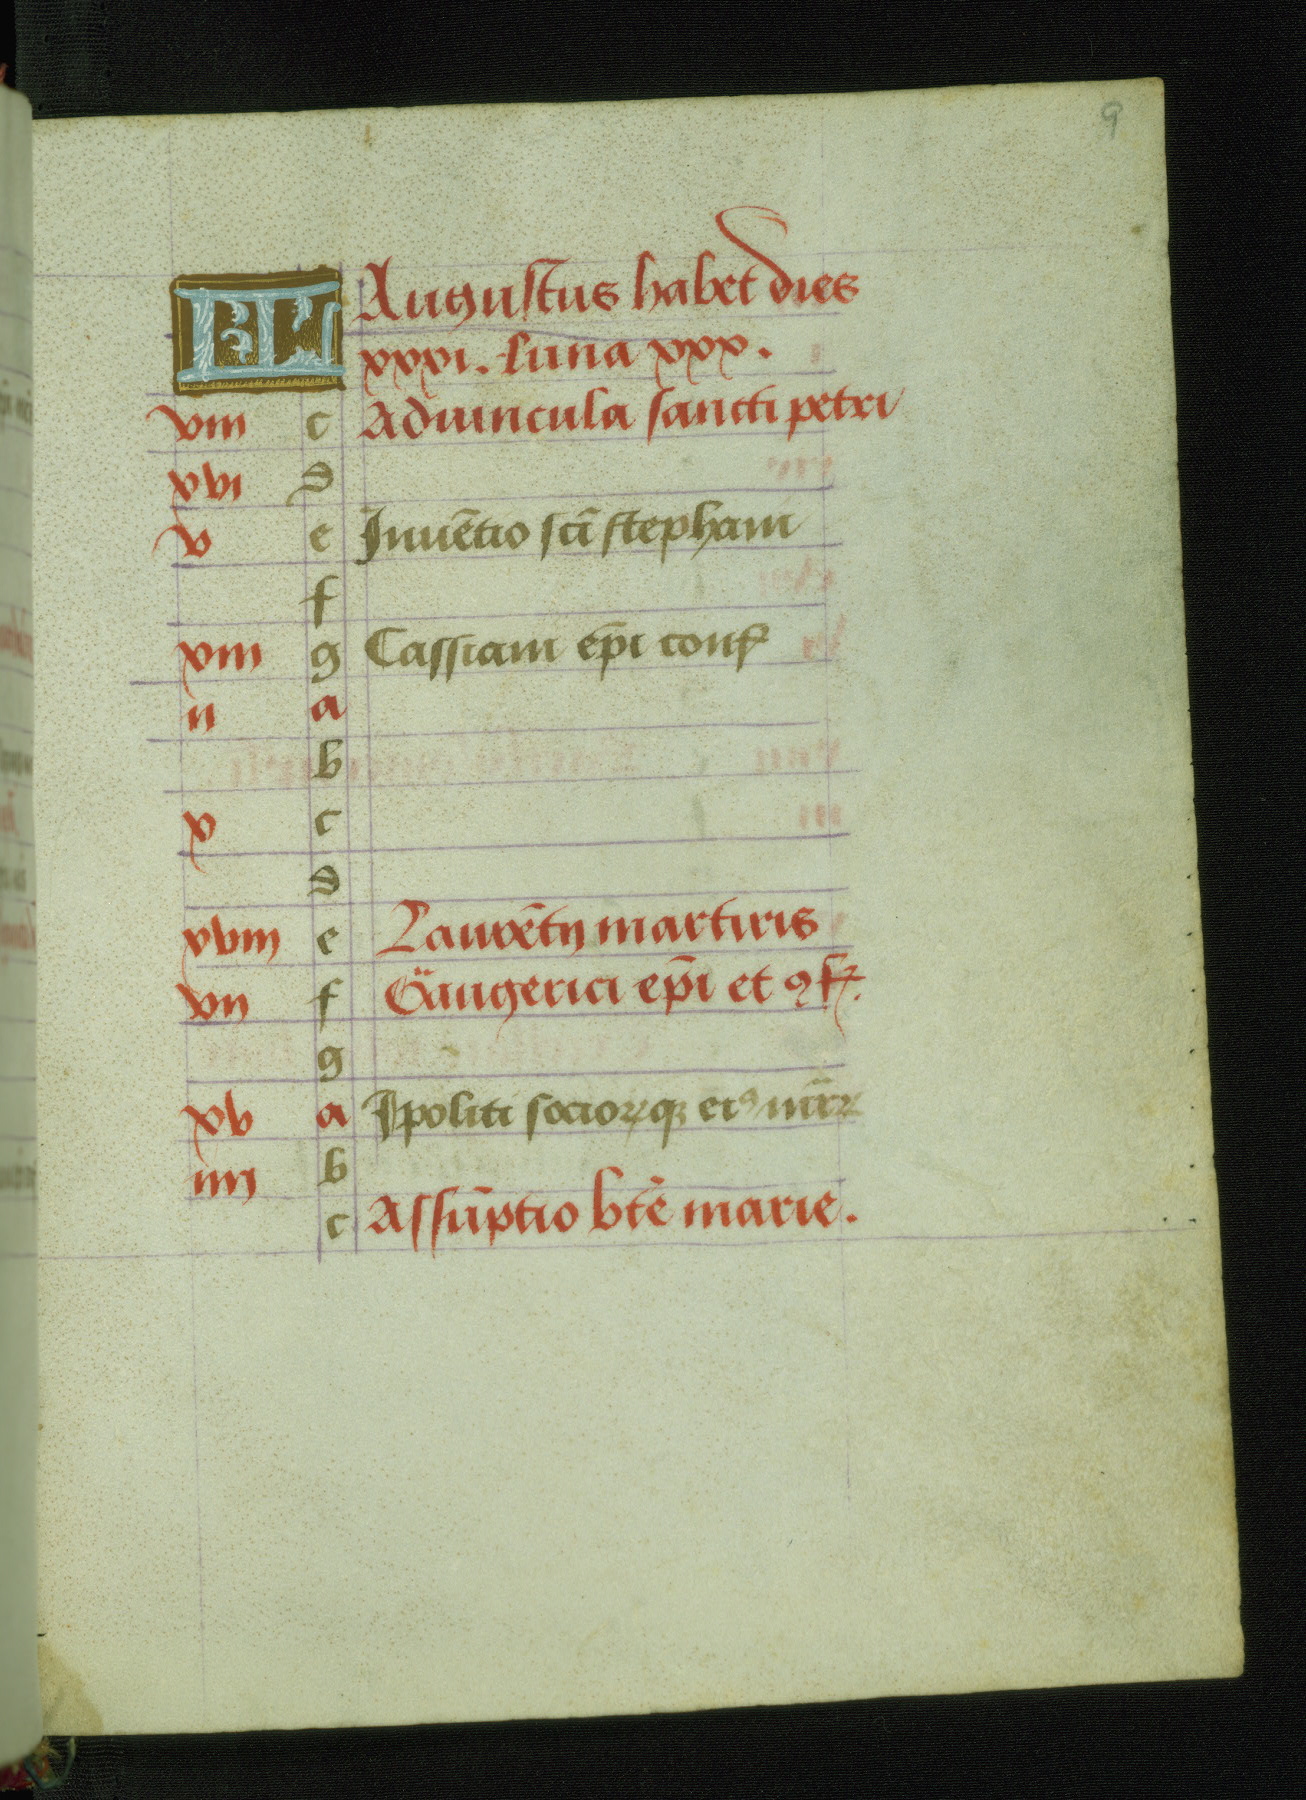 9
KL Augustus habet dies
xxxi. Luna xxx.
viii c Aduincula sancti petri
xvi d
v e Inuētio scī stephani
f
xiii g Cassiani ep̄i conf
ii a
b
x c
d
xviii e Laurētij martiris
vii f Gaugerici ep̄i et ꝯf.
g
xv a Ipoliti sociorꝫqꝫ eiꝰ mr̄
iiij b
c Assūptio btē marie.